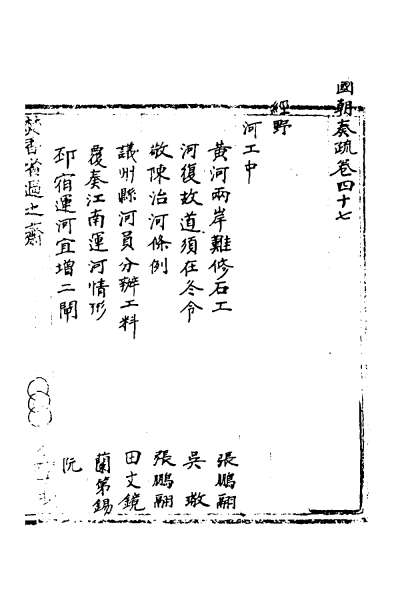 國朝奏疏卷四十七
經野
河工中
黃河兩岸難修石工 張鵬翮
河復故道須在冬令 吳璥
敬陳治河條例 張鵬翮
議州縣河員分辦工料 田文鏡
覆奏江南運河情形 蘭第錫
邳宿運河宜增二閘 阮
焚香省過之齋